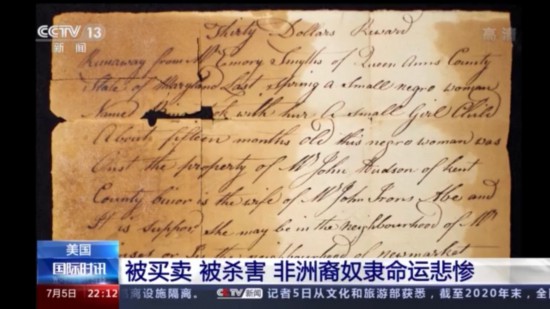 CCTV 13
新闻
高清
Thirty Dollars Reward
Runaway from Mr Emory Smyths of Queen Anns County
State of Maryland Last Spring a Small negro woman
Named with her a Small Girl Child
About fifteen months old this negro woman was
Onst the property of Mr John Hudson of Kent
County is the wife of Mr John Abe and
It is Suppos She may be in the neighbourhood of Mr
newmarket
美国
国际时讯
被买卖 被杀害 非洲裔奴隶命运悲惨
7月5日 22:12 离设施隔离。 CCTV 新闻 记者5日从文化和旅游部获悉，截至2020年末，全